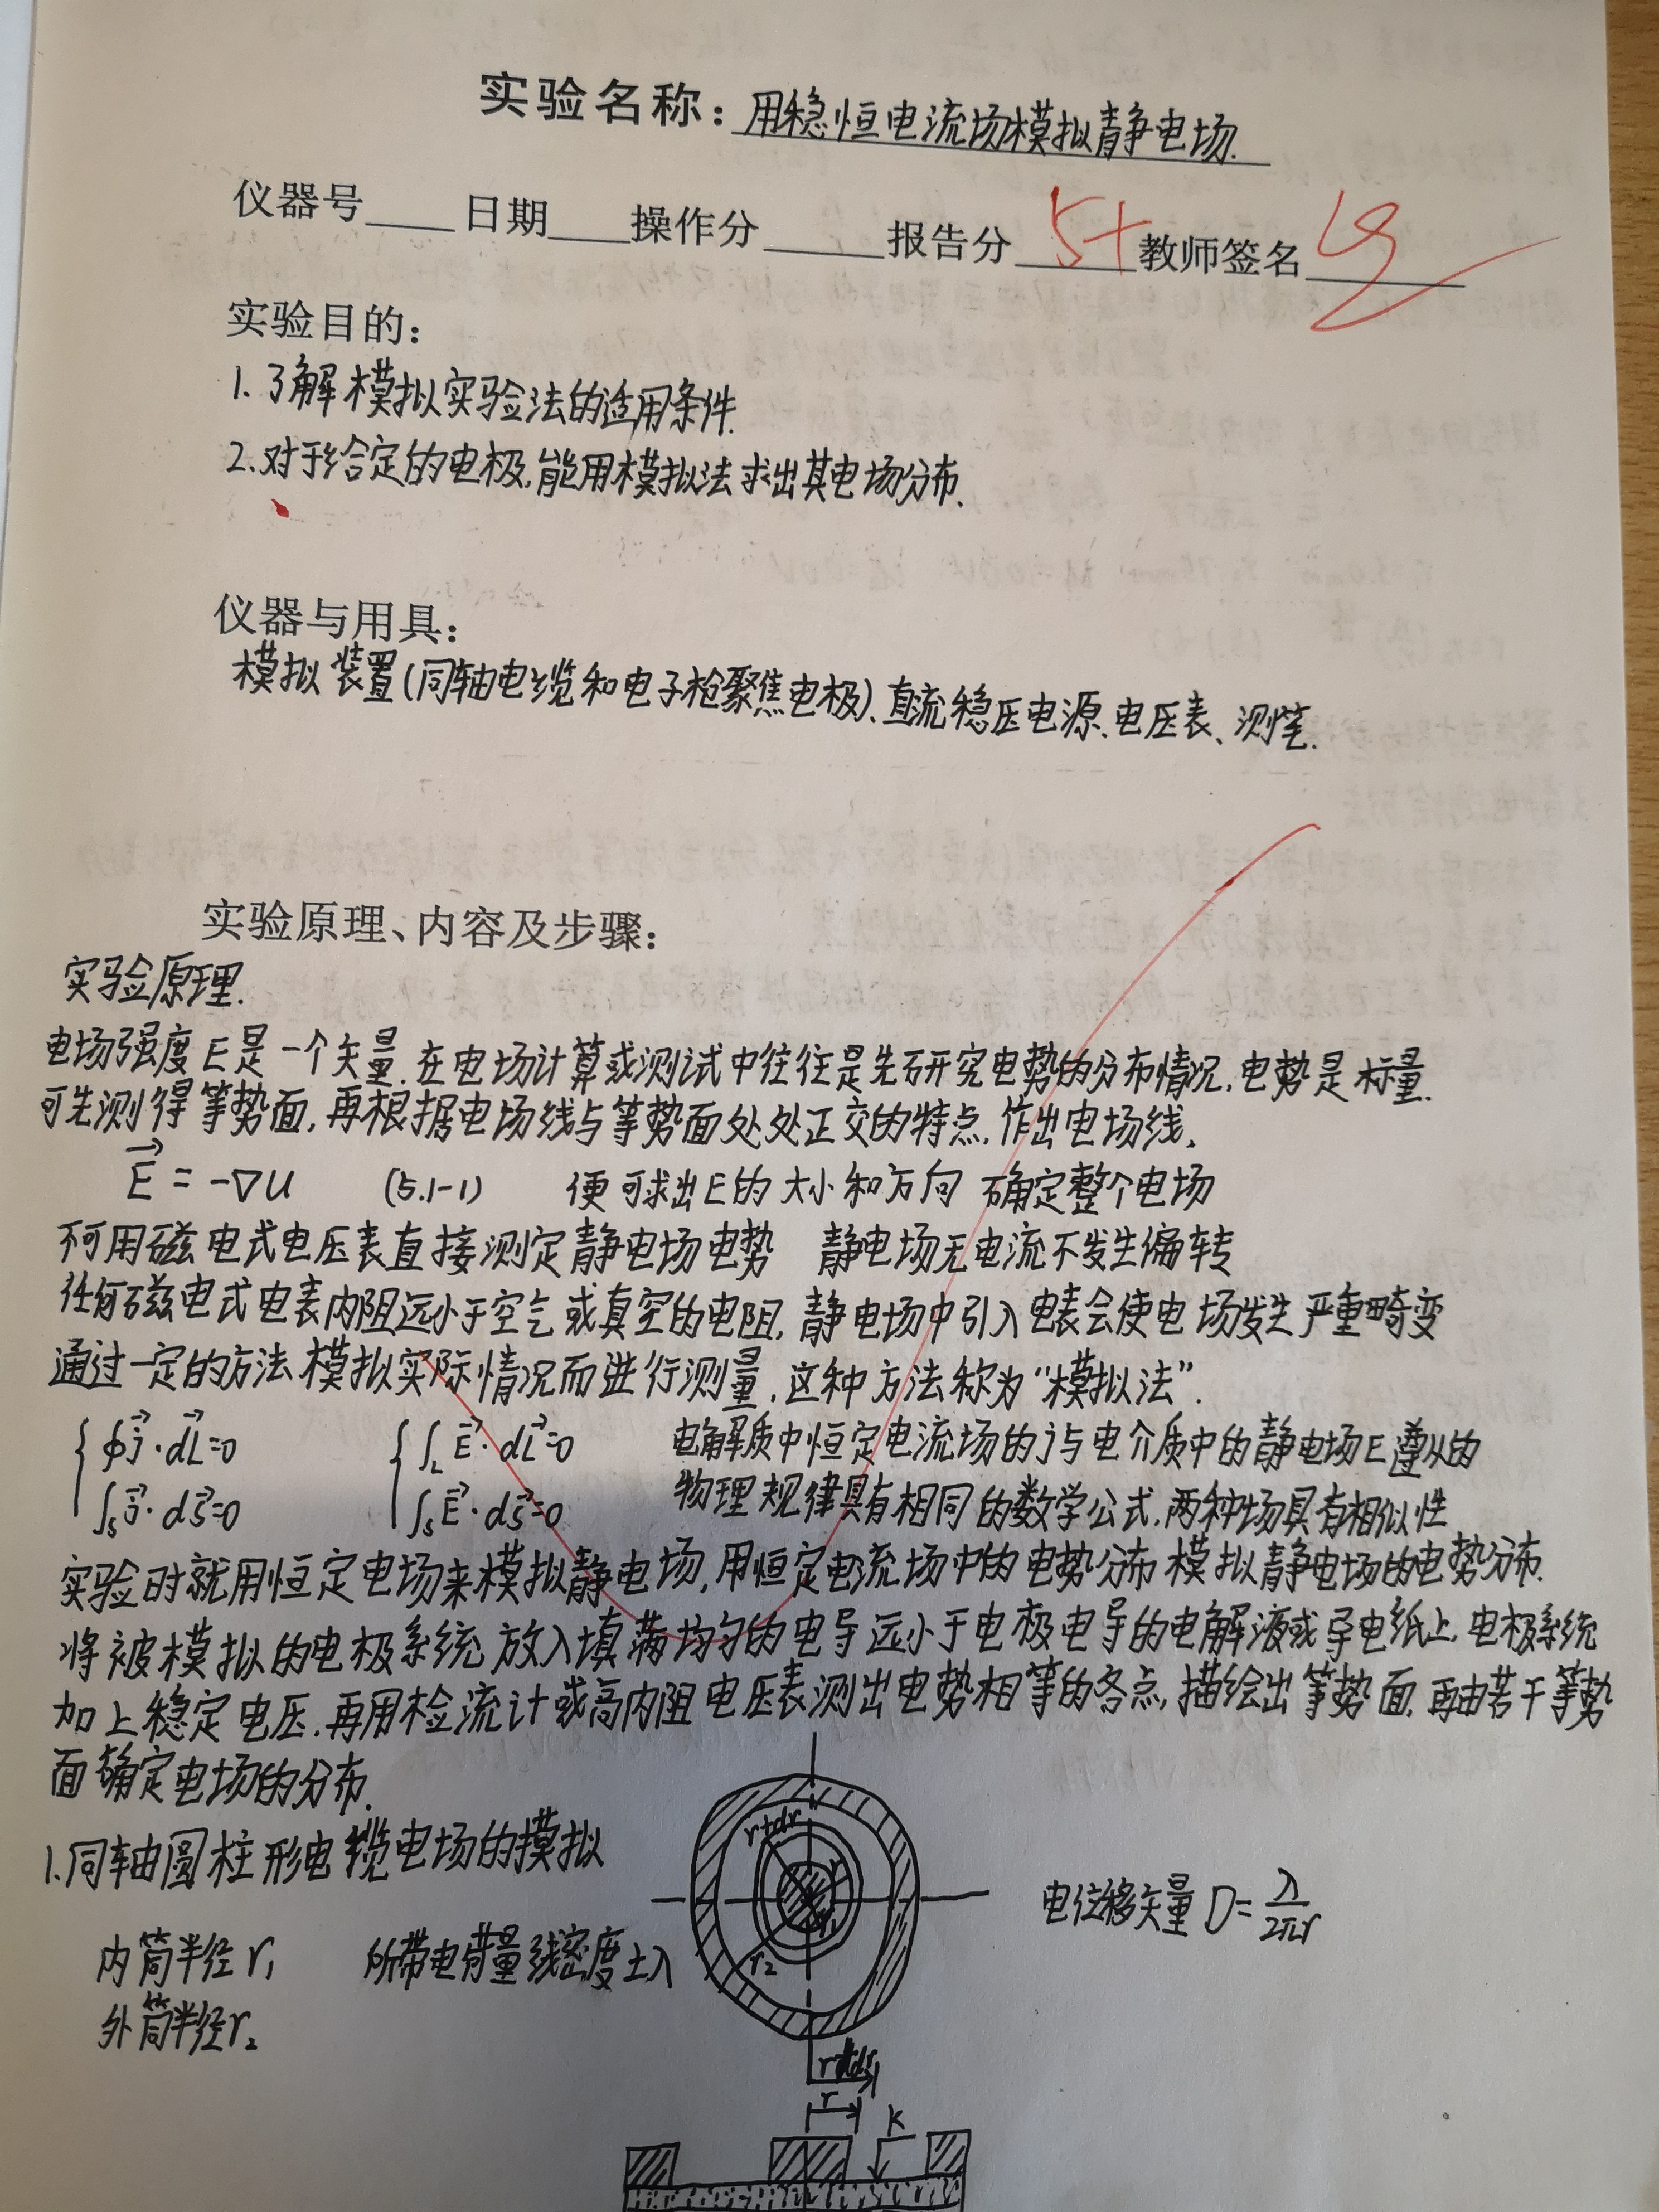 实验名称：用稳恒电流场模拟静电场.
仪器号____日期____操作分____报告分 5+ 教师签名
实验目的：
1.了解模拟实验法的适用条件.
2.对于给定的电极,能用模拟法求出其电场分布.
仪器与用具：
模拟装置(同轴电缆和电子枪聚焦电极)、直流稳压电源、电压表、测笔.
实验原理、内容及步骤：
实验原理.
电场强度E是一个矢量.在电场计算或测试中往往是先研究电势的分布情况,电势是标量.
可先测得等势面,再根据电场线与等势面处处正交的特点,作出电场线,
E⃗ = -∇U (5.1-1) 便可求出E的大小和方向 确定整个电场
不可用磁电式电压表直接测定静电场电势 静电场无电流不发生偏转
任何磁电式电表内阻远小于空气或真空的电阻,静电场中引入电表会使电场发生严重畸变
通过一定的方法模拟实际情况而进行测量,这种方法称为“模拟法”.
∮j⃗·dL⃗=0 ∫_L E⃗·dL⃗=0 电解质中恒定电流场的j与电介质中的静电场E遵从的
∫_S j⃗·dS⃗=0 ∫_S E⃗·dS⃗=0 物理规律具有相同的数学公式,两种场具有相似性
实验时就用恒定电场来模拟静电场,用恒定电流场中的电势分布模拟静电场的电势分布.
将被模拟的电极系统放入填满均匀的电导远小于电极电导的电解液或导电纸上,电极系统
加上稳定电压,再用检流计或高内阻电压表测出电势相等的各点,描绘出等势面,再由若干等势
面确定电场的分布.
1.同轴圆柱形电缆电场的摸拟
r+dr
r
r₁
r₂
电位移矢量 D=λ/2πr
内筒半径r₁ 所带电荷量线密度±λ
外筒半径r₂
r+dr
r
K